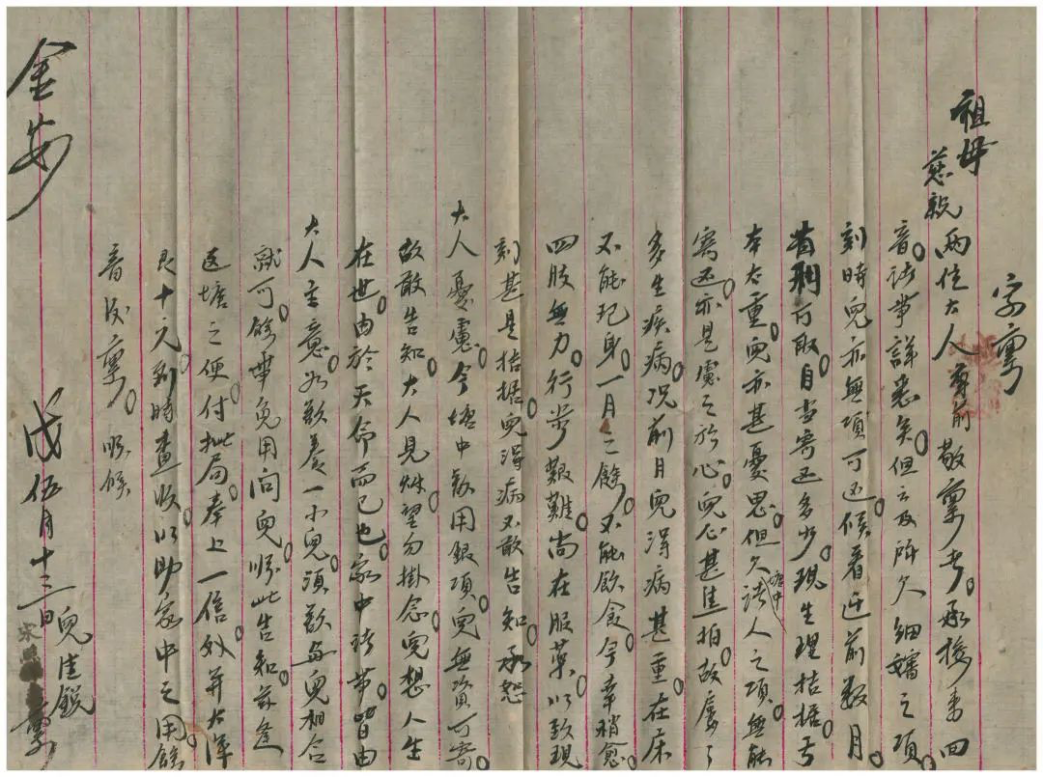 字稟
祖母
慈親兩位大人膝前敬稟者。承接來回
音。諸事詳悉矣。但云及所欠細嬸之項。
刻時兒亦無項可还。候着近前数月。
若到可取。自當寄还多少。現生理拮据。亏
本太重。兒亦甚憂思。但欠諸塘中人之項。無能
寄还。亦是慮之於心。兒心甚焦拍。故屢々
多生疾病。况前月兒得病甚重。在床
不能起身。一月之餘。不能飲食。今幸稍愈。
四肢無力。行步艱難。尚在服藥。以致現
刻甚是拮据。兒得病不敢告知。承恐
大人憂慮。今塘中欲用銀項。兒無資可寄。
故敢告知。大人見妹。望勿掛念。兒想人生
在世。由於天命而已也。家中諸事。皆由
大人主意。如欲養一小兒。須欲與兒相合
就可。餘無免用问兒。順此告知。茲逢
返塘之便付批局。奉上一信外并大洋
艮十元。到時查收。以助家中之用。餘
音後稟。順候
金安
戊伍月十三日兒佳銳
稟